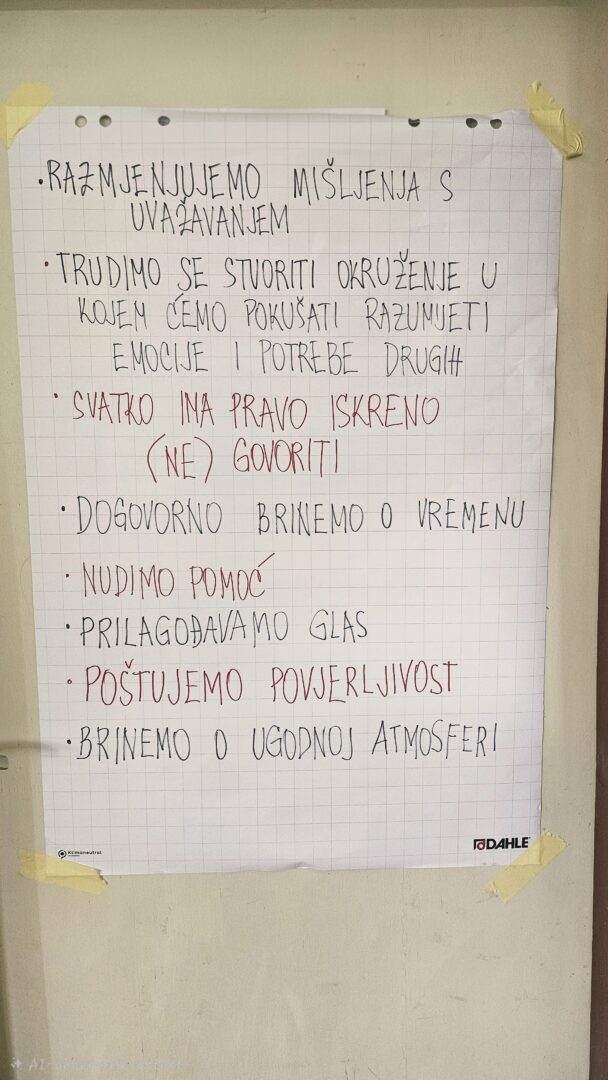 • RAZMJENJUJEMO MIŠLJENJA S
UVAŽAVANJEM
• TRUDIMO SE STVORITI OKRUŽENJE U
KOJEM ĆEMO POKUŠATI RAZUMJETI
EMOCIJE I POTREBE DRUGIH
• SVATKO IMA PRAVO ISKRENO
(NE) GOVORITI
• DOGOVORNO BRINEMO O VREMENU
• NUDIMO POMOĆ
• PRILAGOĐAVAMO GLAS
• POŠTUJEMO POVJERLJIVOST
• BRINEMO O UGODNOJ ATMOSFERI
Klimaneutral
DAHLE